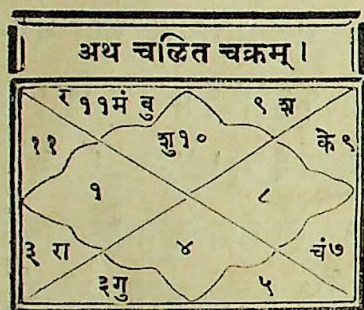 अथ चलित चक्रम् ।
र ११मं बु
९ श
११
शु१०
के९
१
८
३ रा
४
चं७
३गु
५